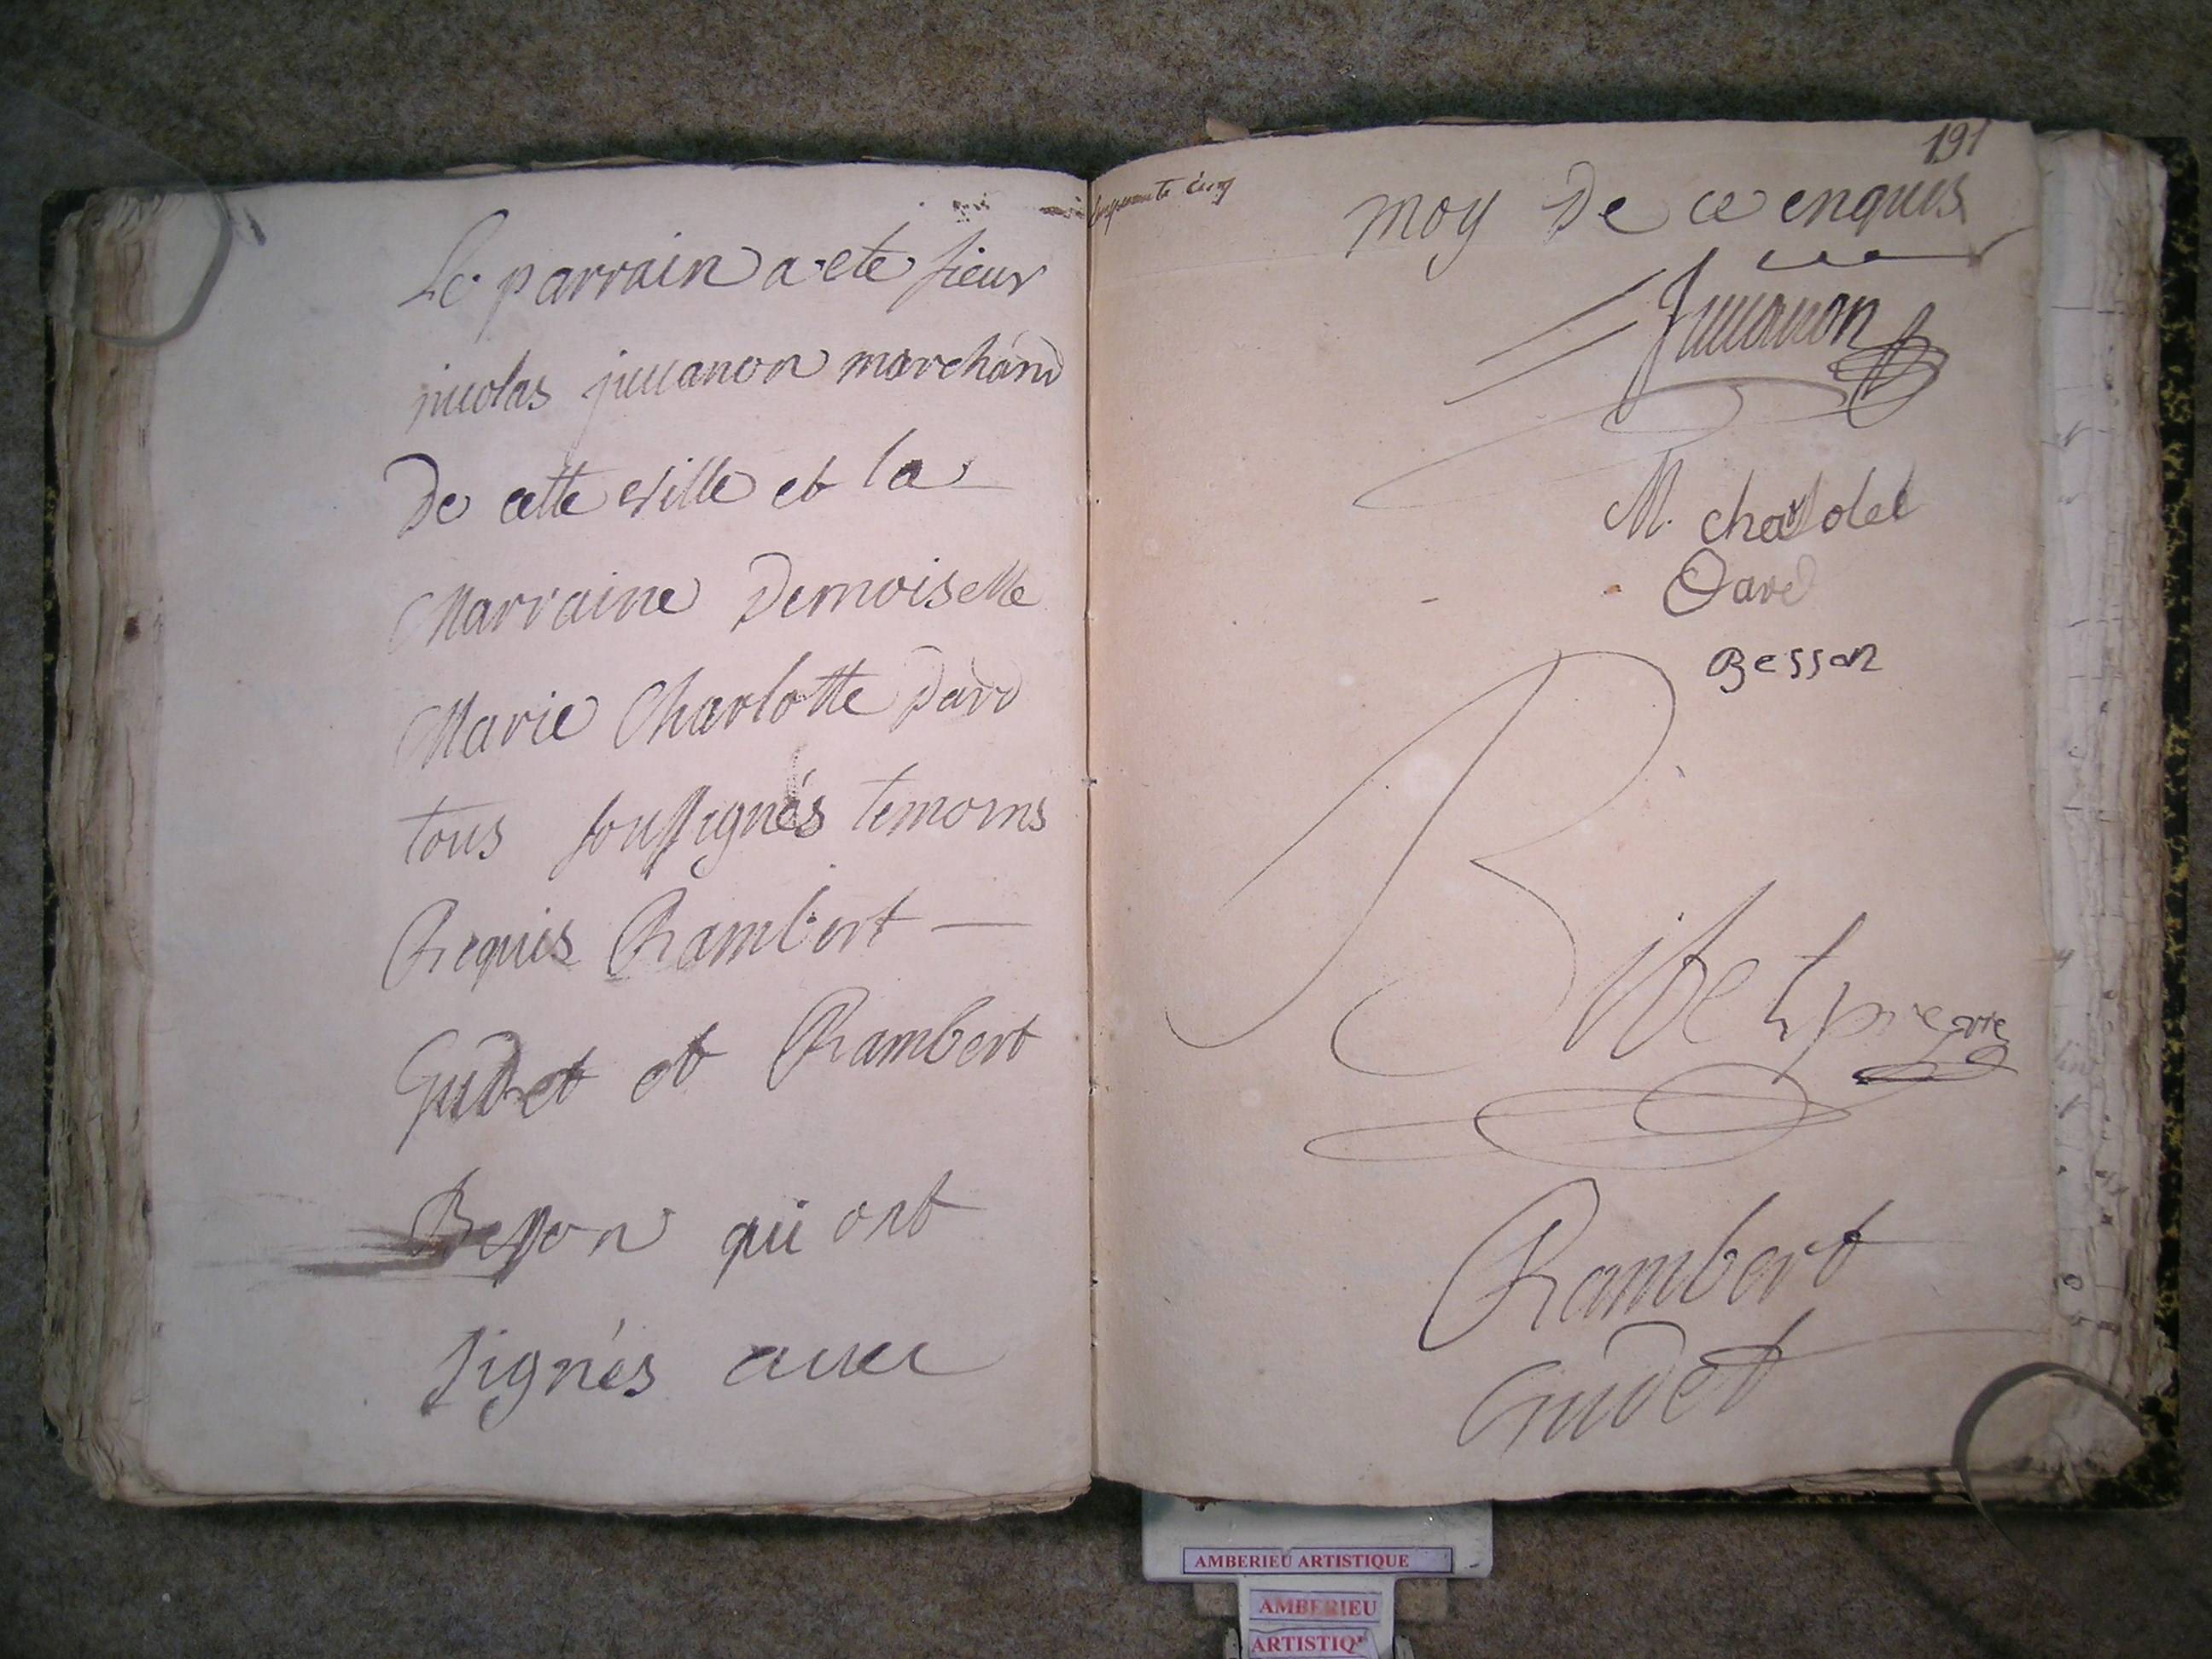 Le parrain a ete sieur
nicolas juuanon marchand
De cette ville et la
Marraine Demoiselle
Marie Charlotte Dard
tous soussignés temoins
Requis Rambert —
Gudet et Rambert
Besson qui ont
signés auec
cinquante cinq
191
moy De ce enquis
Juuanon
M. charlolet
Dard
Besson
Ribet
Rambert
Gudet
AMBERIEU ARTISTIQUE
AMBERIEU
ARTISTIQ